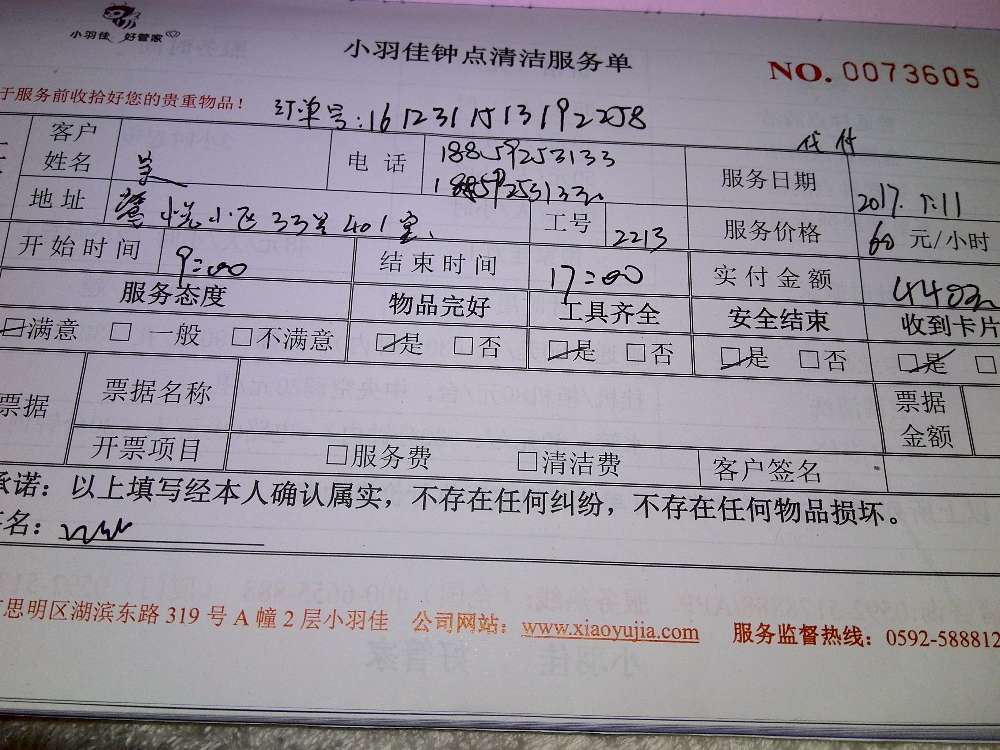 小羽佳 好管家
小羽佳钟点清洁服务单
NO. 0073605
于服务前收拾好您的贵重物品！
订单号:1612311513192258
代付
客户姓名 电话 18859253133 服务日期 2017.1.11
18859253133
地址 小区33号401室 工号 2213 服务价格 60元/小时
开始时间 9:00 结束时间 17:00 实付金额
服务态度 物品完好 工具齐全 安全结束 收到卡片
☑满意 □一般 □不满意 ☑是 □否 ☑是 □否 ☑是 □否 ☑是 □
票据 票据名称 票据金额
开票项目 □服务费 □清洁费 客户签名
承诺：以上填写经本人确认属实，不存在任何纠纷，不存在任何物品损坏。
名：
思明区湖滨东路 319 号 A 幢 2 层小羽佳 公司网站：www.xiaoyujia.com 服务监督热线：0592-588812